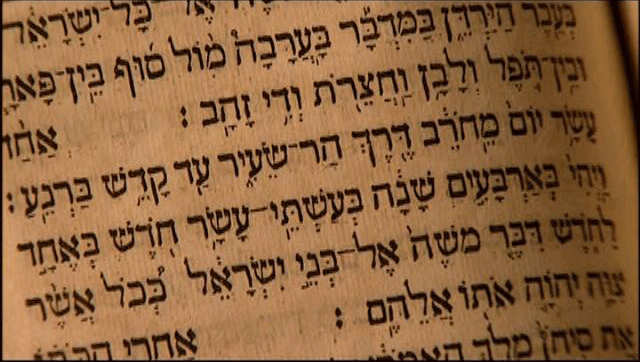 כָּל־יִשְׂרָאֵל
בְּעֵבֶר הַיַּרְדֵּן בַּמִּדְבָּר בָּעֲרָבָה מוֹל סוּף בֵּין־פָּארָ
וּבֵין־תֹּפֶל וְלָבָן וַחֲצֵרֹת וְדִי זָהָב׃ אַחַד
עָשָׂר יוֹם מֵחֹרֵב דֶּרֶךְ הַר־שֵׂעִיר עַד קָדֵשׁ בַּרְנֵעַ׃
וַיְהִי בְּאַרְבָּעִים שָׁנָה בְּעַשְׁתֵּי־עָשָׂר חֹדֶשׁ בְּאֶחָד
לַחֹדֶשׁ דִּבֶּר מֹשֶׁה אֶל־בְּנֵי יִשְׂרָאֵל כְּכֹל אֲשֶׁר
צִוָּה יְהוָה אֹתוֹ אֲלֵהֶם׃ אַחֲרֵי הַכֹּתוֹ
אֵת סִיחֹן מֶלֶךְ הָאֱמֹרִי